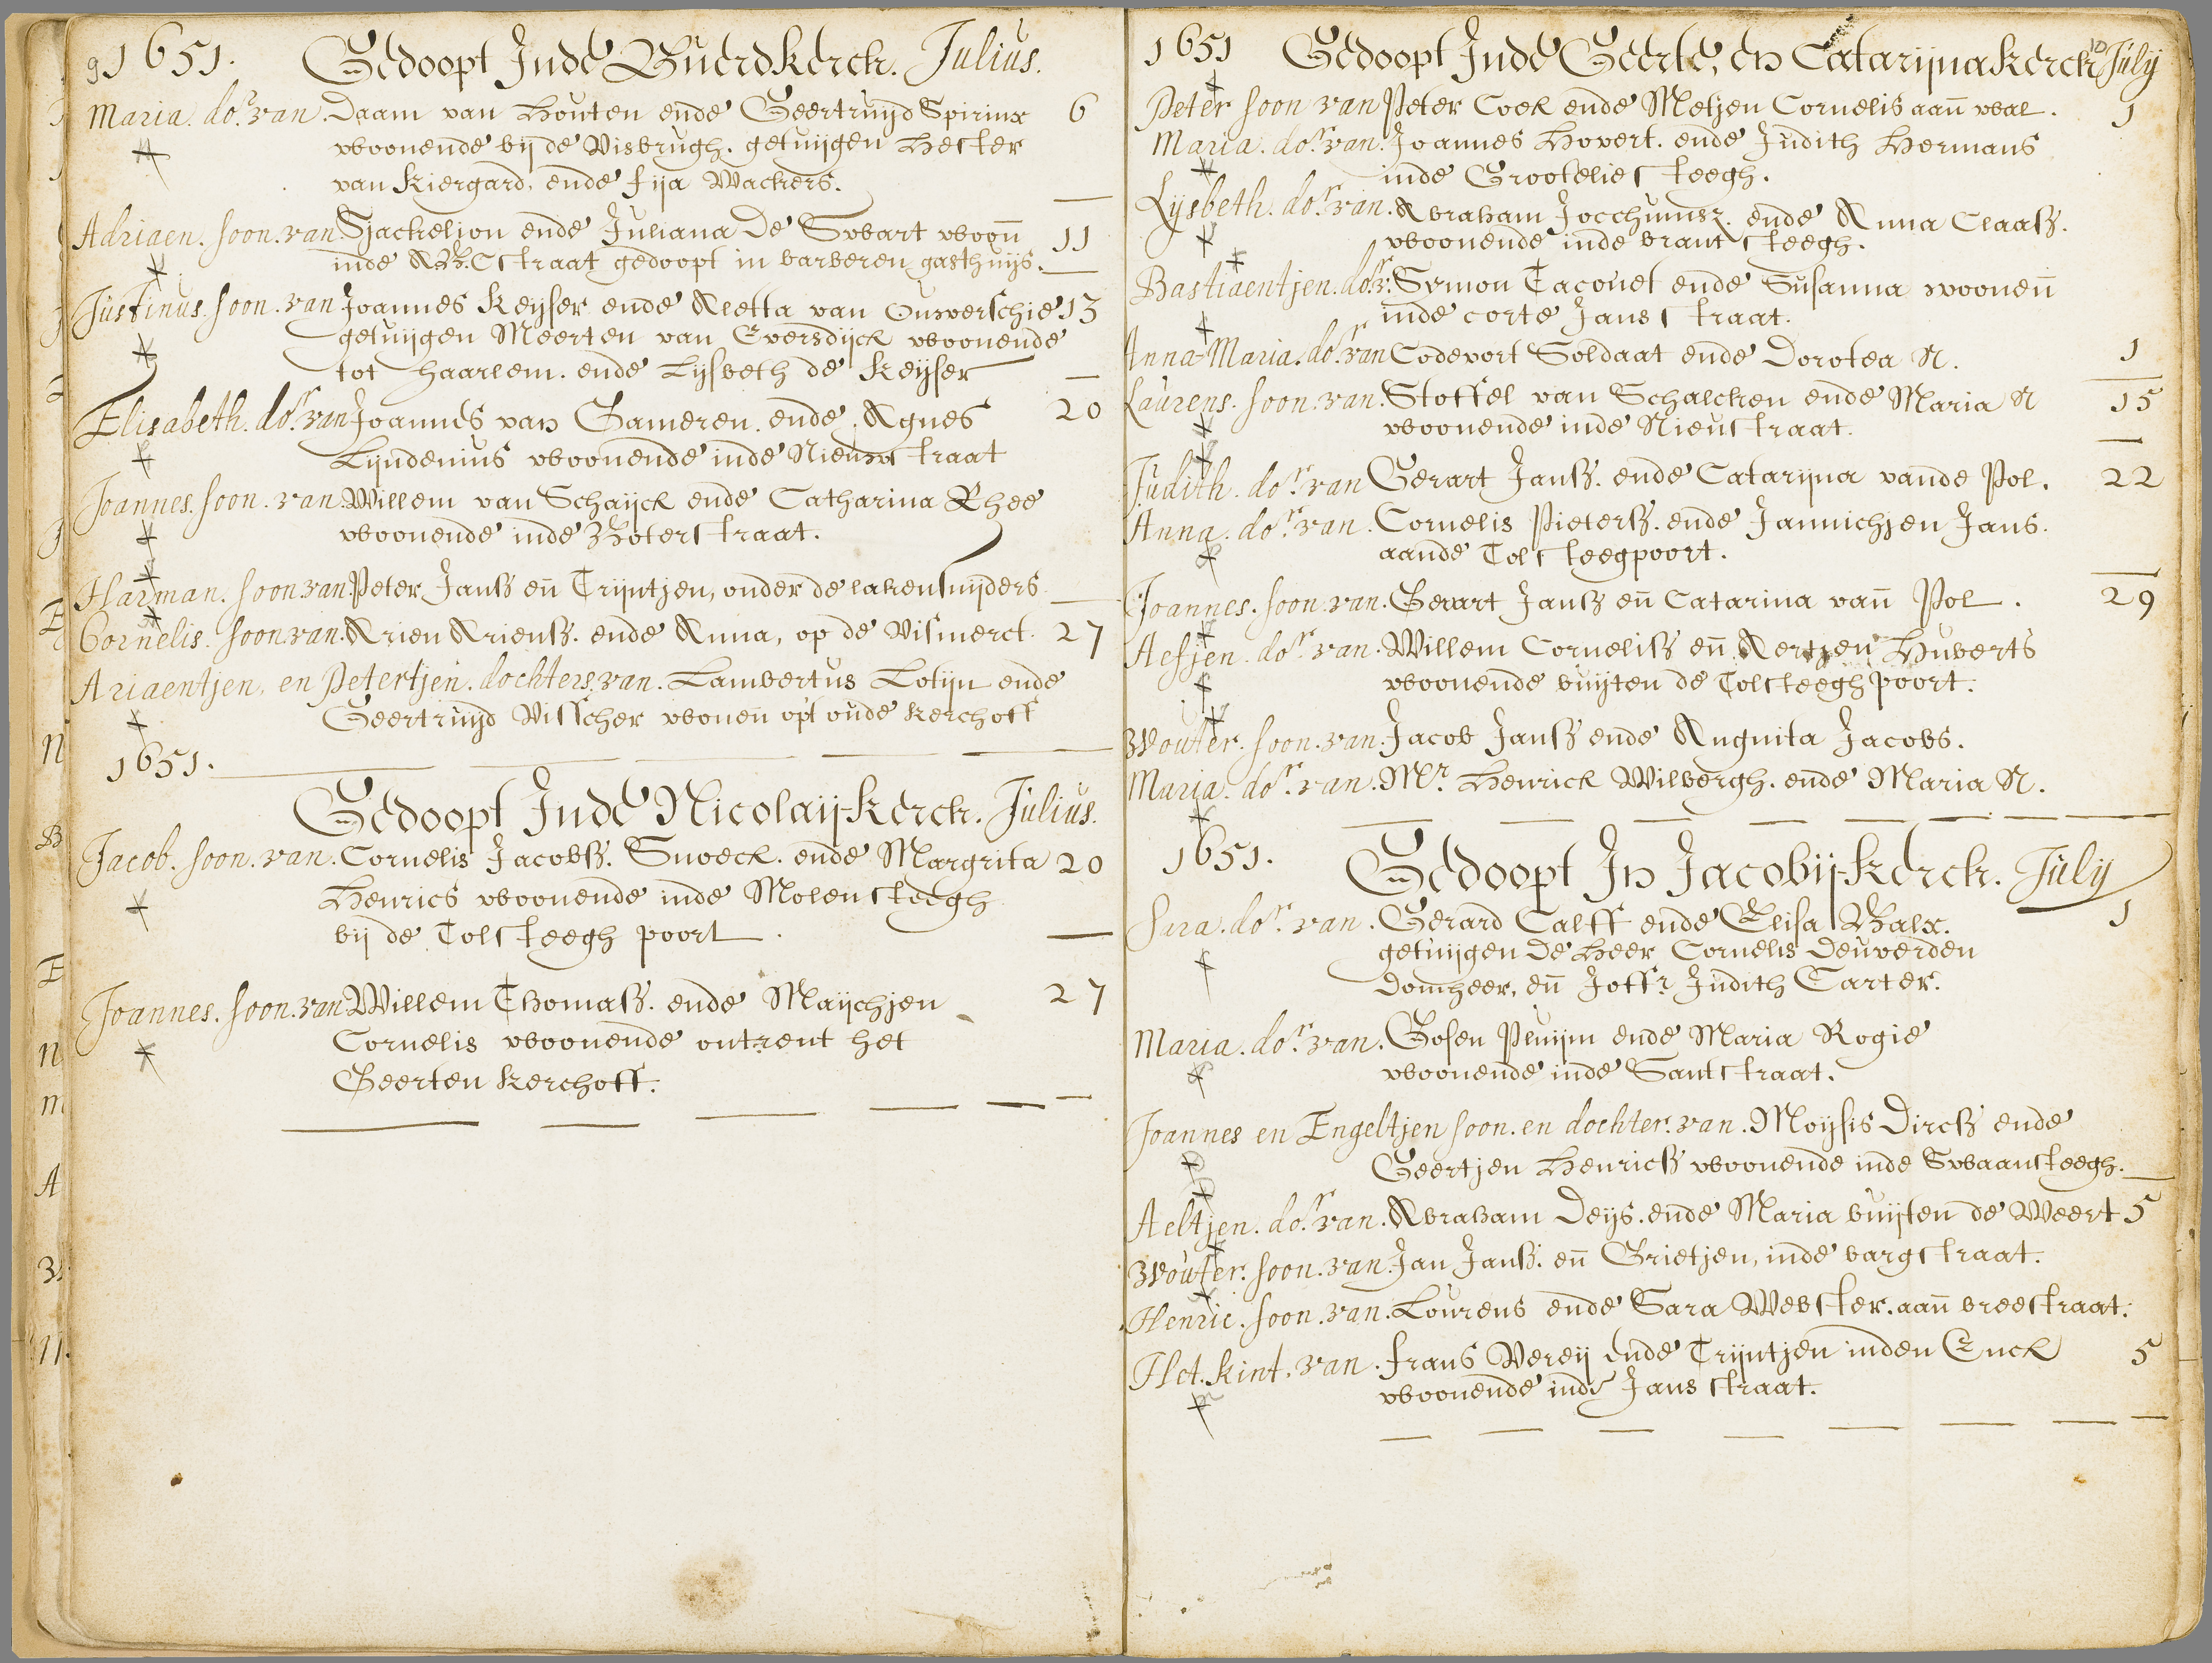 9 1651. Gedoopt Inde Buerdkerck. Julius.
Maria. dor. van. Daam van Houten ende Geertruijd Spirinx 6
woonende bij de Visbrugh. getuijgen Hester
van Kiergard, ende fija Wackers.
Adriaen. soon. van. Sjackelion ende Juliana De Swart woon̄ 11
inde ABC straat gedoopt in barberen gasthuijs.
Justinus. soon. van Joannes Keyser ende Aletta van Ouwerschie 13
getuijgen Meerten van Eversdijck woonende
tot Haarlem. ende Lijsbeth de Keyser
Elisabeth. dor. van Joannes van Gameren. ende. Agnes 20
Lijndenius woonende inde Nieuwstraat
Joannes. soon. van. Willem van Schaijck ende Catharina Rhee
woonende inde Boterstraat.
Harman. soon. van. Peter Janß en̄ Trijntjen, onder de lakensnijders
Cornelis. soon. van. Arien Arienß. ende Anna, op de Vismerct. 27
Ariaentjen, en Petertjen. dochters. van. Lambertus Lotijn ende
Geertruijd Visscher wonen̄ opt oude kerchoff
1651.
Gedoopt Inde Nicolaij-kerck. Julius.
Jacob. soon. van. Cornelis Jacobß. Snoeck. ende Margrita 20
Henrics woonende inde Molensteegh
bij de Tolsteegh poort.
Joannes. soon. van Willem Thomaß. ende Maijchjen 27
Cornelis woonende ontrent het
Geerten kerchoff.
1651 Gedoopt Inde Geerte, en Catarijnakerck 10 July
Peter soon van Peter Cock ende Metjen Cornelis aan̄ wal. 1
Maria. dor. van. Joannes Hovert. ende Judith Hermans
inde Groote lie steegh.
Lijsbeth. dor. van. Abraham Jocchumsz. ende Anna Claaß.
woonende inde brantsteegh.
Bastiaentjen. dor. v: Symon Tacouet ende Susanna woonen̄
inde corte Jansstraat.
Anna-Maria. dor. van Codevort Soldaat ende Dorotea N. 1
Laurens. soon. van. Stoffel van Schalcken ende Maria N 15
woonende inde Nieustraat.
Judith. dor. van Gerart Janß. ende Catarijna vande Pol. 22
Anna. dor. van. Cornelis Pieterß. ende Jannichjen Jans.
aande Tolsteegpoort.
Joannes. soon. van. Gerart Janß en̄ Catarina van̄ Pol. 29
Aefjen. dor. van. Willem Corneliß en̄ Aertjen Huberts
woonende buijten de Tolsteegh poort.
Wouter. soon. van. Jacob Janß ende Angnita Jacobs.
Maria. dor. van. Mr. Henrick Wilbergh. ende Maria N.
1651. Gedoopt In Jacobij-kerck. July
Sara. dor. van. Gerard Calff ende Elisa Balx. 1
getuijgen De Heer Cornelis Deuverden
Domheer, en̄ Joffr. Judith Carter.
Maria. dor. van. Gosen Pluijm ende Maria Rogie
woonende inde Santstraat.
Joannes en Engeltjen soon. en dochter. van. Moijsis Dircß ende
Geertjen Henricß woonende inde Swaansteegh.
Aeltjen. dor. van. Abraham Deijs. ende Maria buijten de Weert 5
Wouter. soon. van. Jan Janß. en̄ Grietjen, inde bargstraat.
Henric. soon. van. Lourens ende Sara Webster. aan̄ breestraat.
Het. kint. van. frans Vereij ende Trijntjen inden Enck 5
woonende inde Jansstraat.